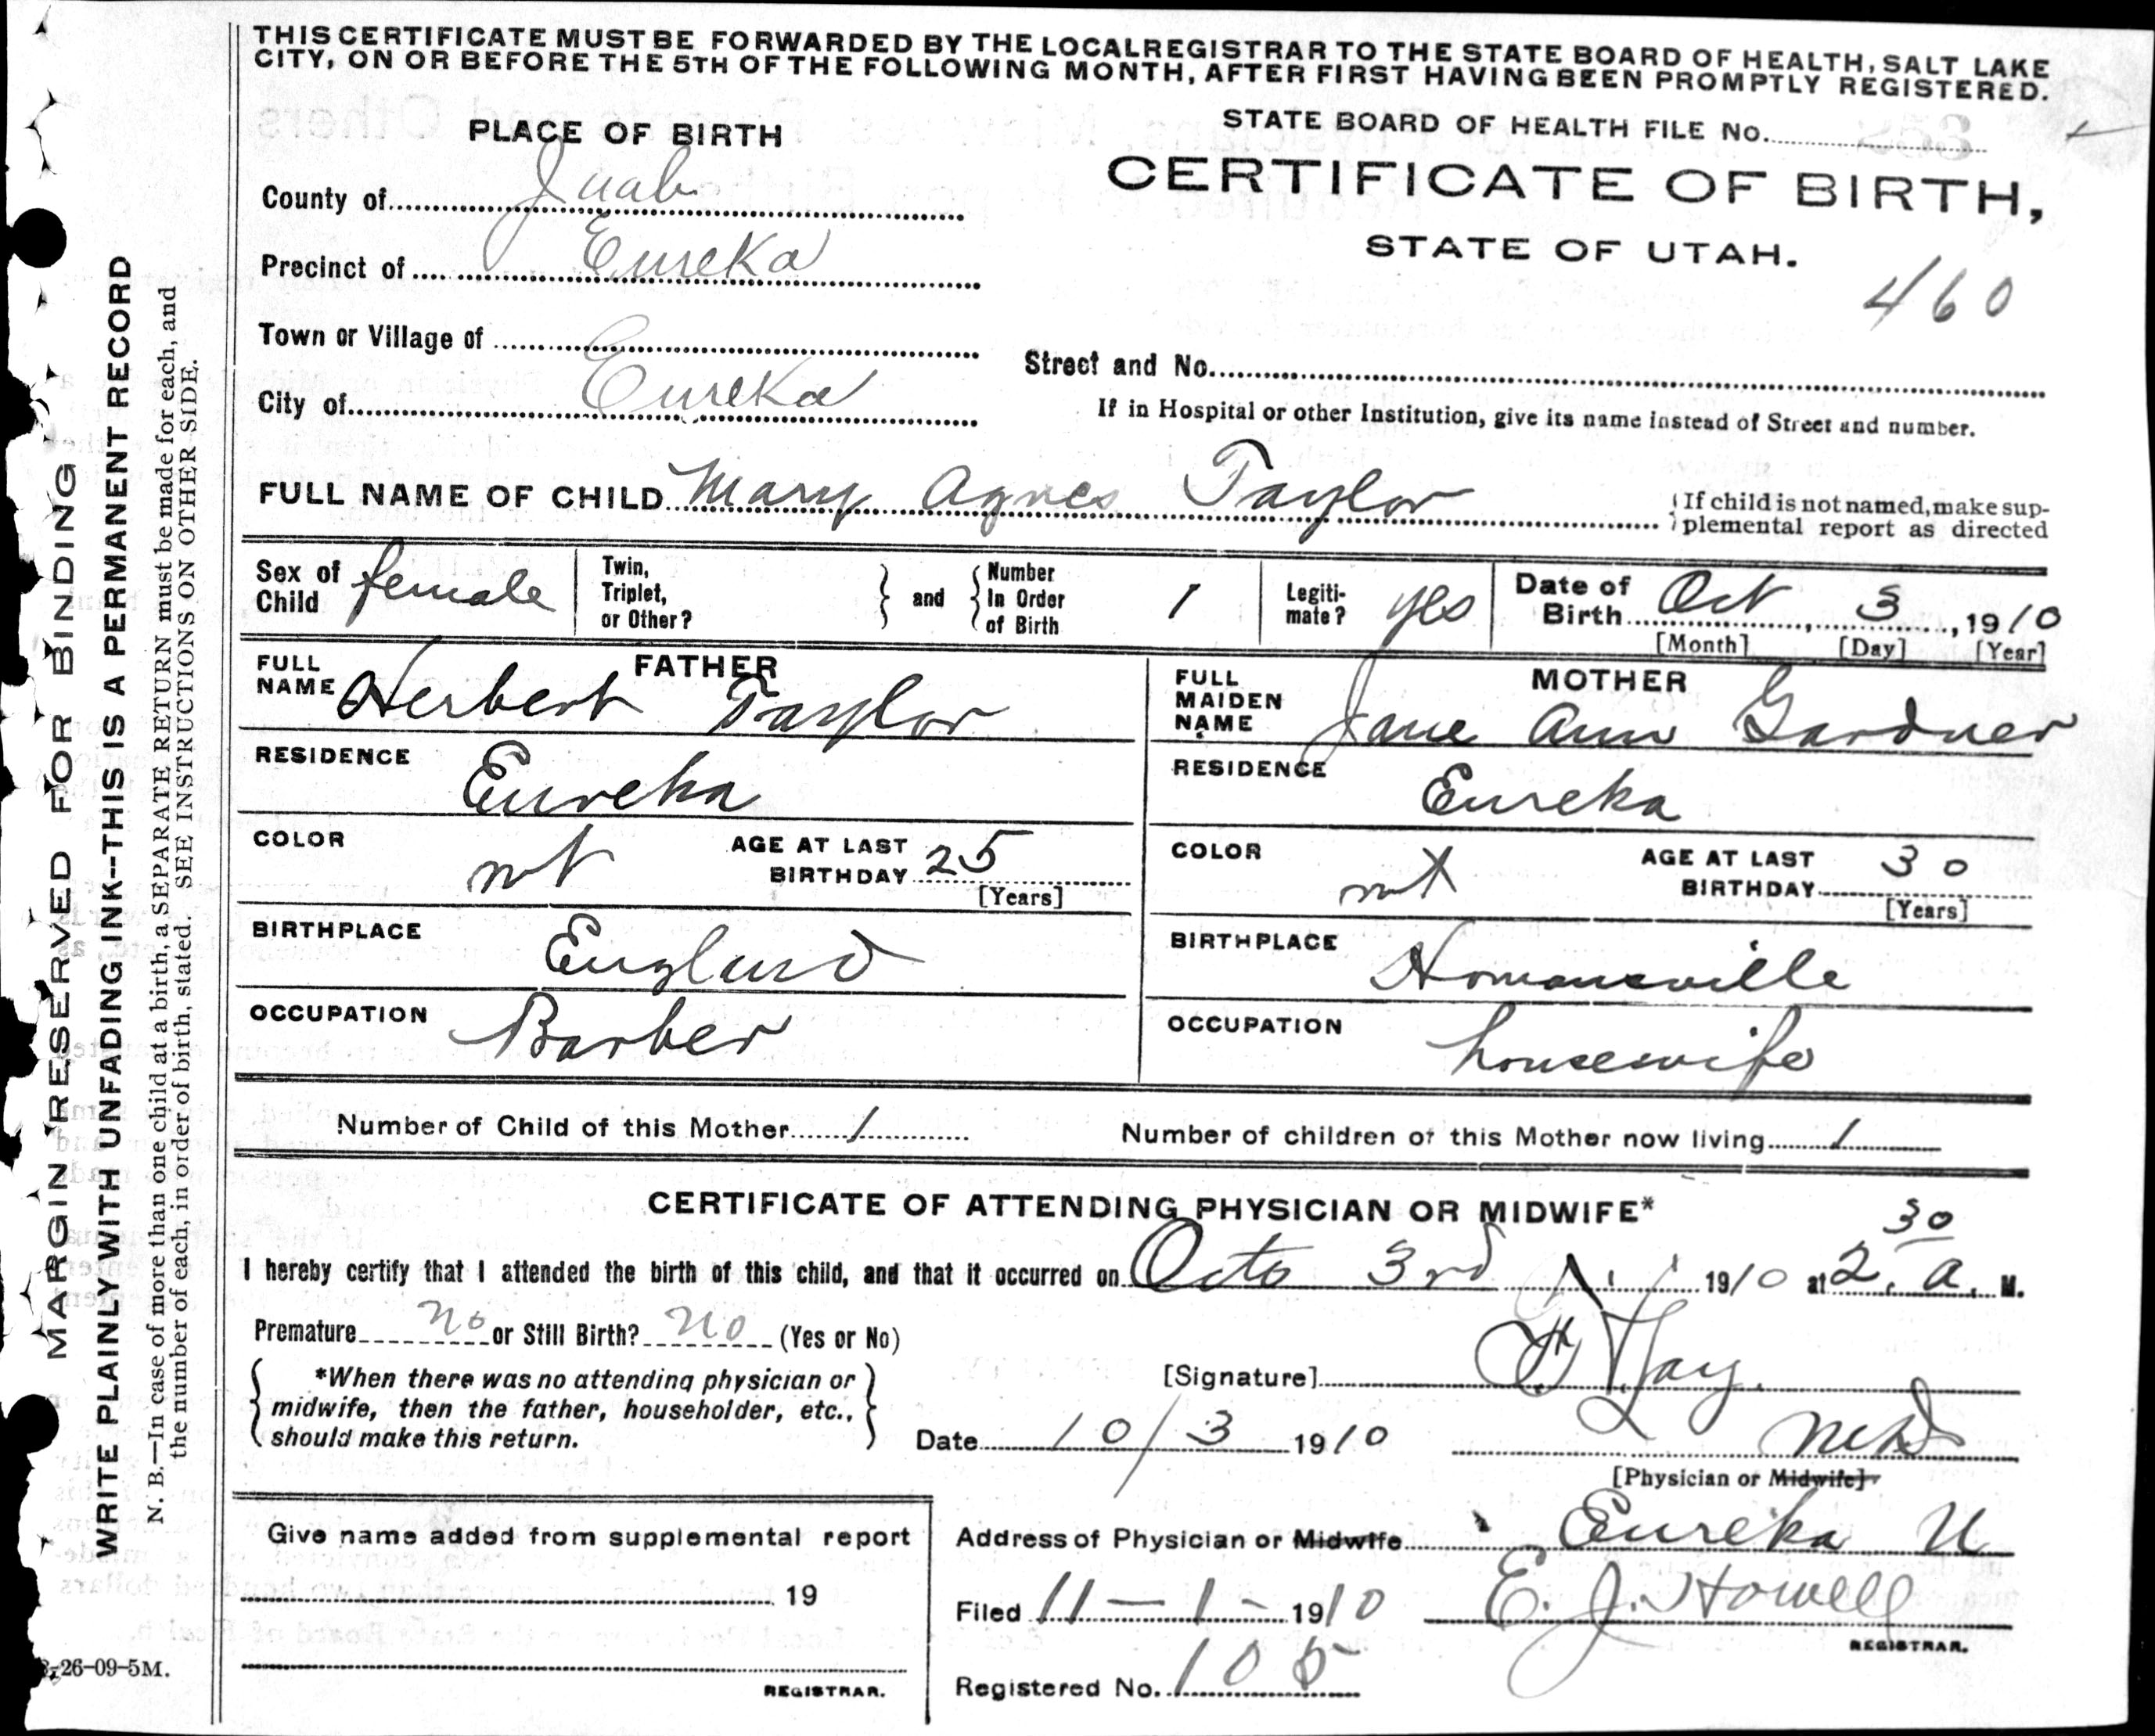 THIS CERTIFICATE MUST BE FORWARDED BY THE LOCAL REGISTRAR TO THE STATE BOARD OF HEALTH, SALT LAKE
CITY, ON OR BEFORE THE 5TH OF THE FOLLOWING MONTH, AFTER FIRST HAVING BEEN PROMPTLY REGISTERED.
PLACE OF BIRTH
STATE BOARD OF HEALTH FILE No.
CERTIFICATE OF BIRTH,
STATE OF UTAH.
460
County of Juab
Precinct of Eureka
Town or Village of
Street and No.
City of Eureka
If in Hospital or other Institution, give its name instead of Street and number.
FULL NAME OF CHILD Mary Agnes Taylor
If child is not named, make sup-
plemental report as directed
Sex of Child female
Twin, Triplet, or Other? and Number In Order of Birth 1
Legiti-mate? yes
Date of Birth Oct 3, 1910
[Month] [Day] [Year]
FATHER
FULL NAME Herbert Taylor
RESIDENCE Eureka
COLOR wt AGE AT LAST BIRTHDAY 25
[Years]
BIRTHPLACE England
OCCUPATION Barber
MOTHER
FULL MAIDEN NAME Jane Ann Gardner
RESIDENCE Eureka
COLOR wt AGE AT LAST BIRTHDAY 30
[Years]
BIRTHPLACE Homansville
OCCUPATION housewife
Number of Child of this Mother 1
Number of children of this Mother now living 1
CERTIFICATE OF ATTENDING PHYSICIAN OR MIDWIFE*
I hereby certify that I attended the birth of this child, and that it occurred on Octo 3rd 1910 at 2.30 a. M.
Premature no or Still Birth? no (Yes or No)
*When there was no attending physician or
midwife, then the father, householder, etc.,
should make this return.
[Signature]
Date 10/3 1910
MD
[Physician or Midwife]
Address of Physician or Midwife Eureka U
Give name added from supplemental report
19
REGISTRAR.
Filed 11-1-1910 E. J. Howell
REGISTRAR.
Registered No. 105
26-09-5M.
MARGIN RESERVED FOR BINDING
WRITE PLAINLY WITH UNFADING INK--THIS IS A PERMANENT RECORD
N. B.—In case of more than one child at a birth, a SEPARATE RETURN must be made for each, and
the number of each, in order of birth, stated. SEE INSTRUCTIONS ON OTHER SIDE.